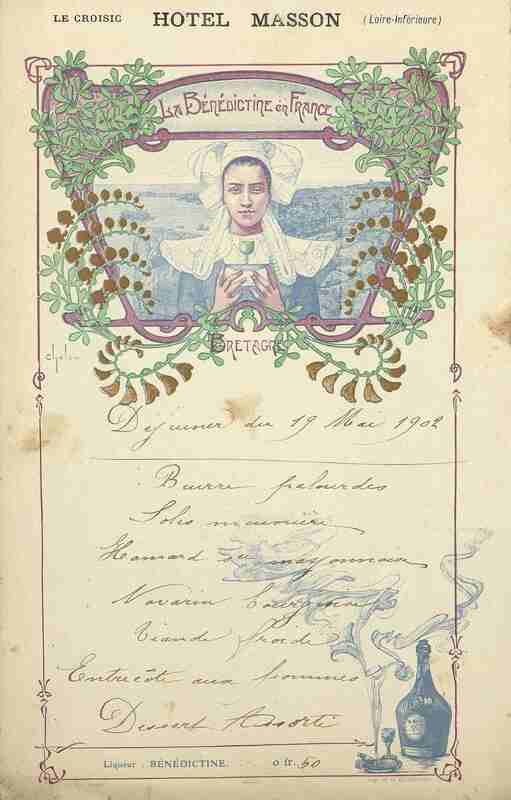 LE CROISIC HOTEL MASSON (Loire-Inférieure)
LA BÉNÉDICTINE EN FRANCE
BRETAGNE
Déjeuner du 19 Mai 1902
Beurre palourdes
Soles meunière
Homard mayonnaise
Navarin
Viande froide
Entrecôte aux pommes
Dessert Assorti
Liqueur : BÉNÉDICTINE. 0 fr. 50